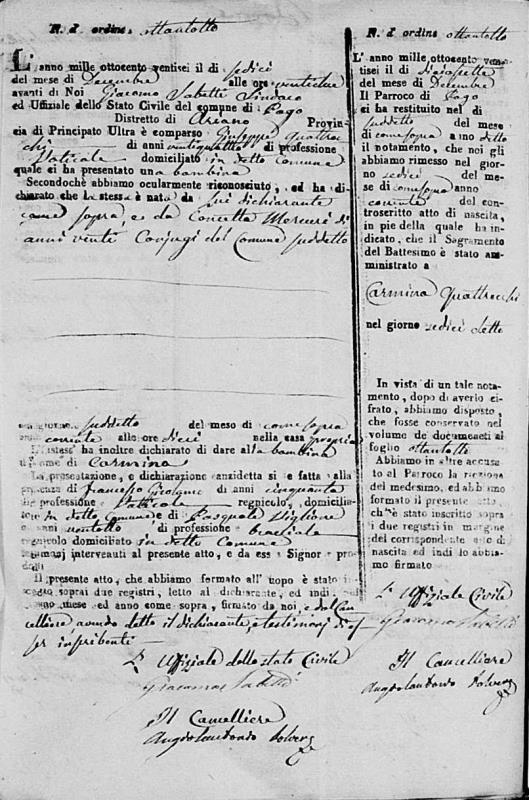 N. d' ordine ottantotto
L' anno mille ottocento ventisei il dì sedici
del mese di Decembre alle ore ventidue
avanti di Noi Giacomo Sabetti Sindaco
ed Uffiziale dello Stato Civile del comune di Pago
Distretto di Ariano Provin-
cia di Principato Ultra è comparso Giuseppe Quattroc
chi di anni ventiquattro di professione
Vaticale domiciliato in detto Comune
quale ci ha presentato una bambina
Secondochè abbiamo ocularmente riconosciuto, ed ha di-
chiarato che la stessa è nata da lui dichiarante
come sopra, e da Concetta Mercuri di
anni venti Conjugi del Comune suddetto
nel giorno suddetto del mese di come sopra
anno corrente alle ore dieci nella casa propria
L' istess' ha inoltre dichiarato di dare alla bambina
il nome di Carmina
La presentazione, e dichiarazione anzidetta si è fatta alla
presenza di Francesco di anni cinquanta
di professione Vaticale regnicolo, domicilia-
to in detto Comune e di Pasquale
di anni ventotto di professione bracciale
regnicolo domiciliato in detto Comune
testimonj intervenuti al presente atto, e da ess' Signor
Il presente atto, che abbiamo formato all' uopo è stato in-
scritto sopra due registri, letto al dichiarante, ed indi nel
giorno mese ed anno come sopra, firmato da noi e dal Can
celliere avendo detto il dichiarante, e testimonj di
ser inscribenti
L' Uffiziale dello stato Civile
Giacomo Sabetti
Il Cancelliere
Angelantonio
N. d' ordine ottantotto
L' anno mille ottocento ven-
tisei il dì diciasette
del mese di Decembre
Il Parroco di Pago
ci ha restituito nel dì
suddetto del mese
di come sopra anno detto
il notamento, che noi gli
abbiamo rimesso nel gior-
no sedici del me-
se di come sopra anno
corrente del con-
troscritto atto di nascita,
in piè della quale ha in-
dicato, che il Sagramento
del Battesimo è stato am-
ministrato a
Carmina Quattrocchi
nel giorno sedici detto
In vista di un tale nota-
mento, dopo di averlo ci-
frato, abbiamo disposto,
che fosse conservato nel
volume de documenti al
foglio ottantotto
Abbiamo in oltre accusa-
to al Parroco la ricezione
del medesimo, ed abbiamo
formato il presente atto,
ch' è stato inscritto sopra
i due registri in margine
del corrispondente atto di
nascita ed indi lo abbia-
mo firmato
L' Uffiziale Civile
Giacomo Sabetti
Il Cancelliere
Angelantonio